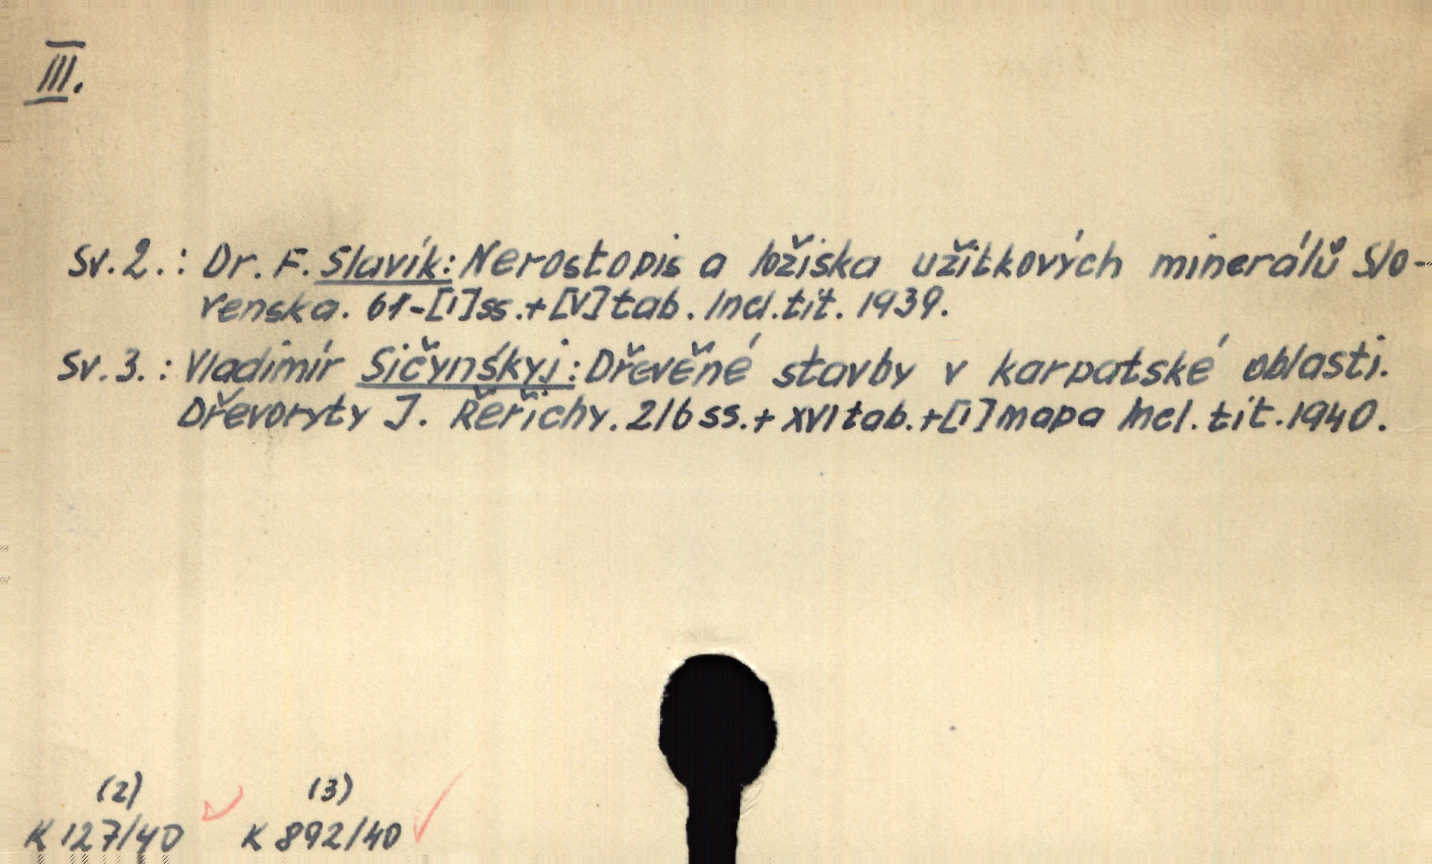 III.
Sv. 2.: Dr. F. Slavík: Nerostopis a ložiska užitkových minerálů Slo-
venska. 61-[I] ss. + [V] tab. Incl. tit. 1939.
Sv. 3.: Vladimír Sičynśkyj: Dřevěné stavby v karpatské oblasti.
Dřevoryty J. Řeřichy. 216 ss. + XVI tab. + [I] mapa Incl. tit. 1940.
(2) (3)
K 127/40 K 892/40